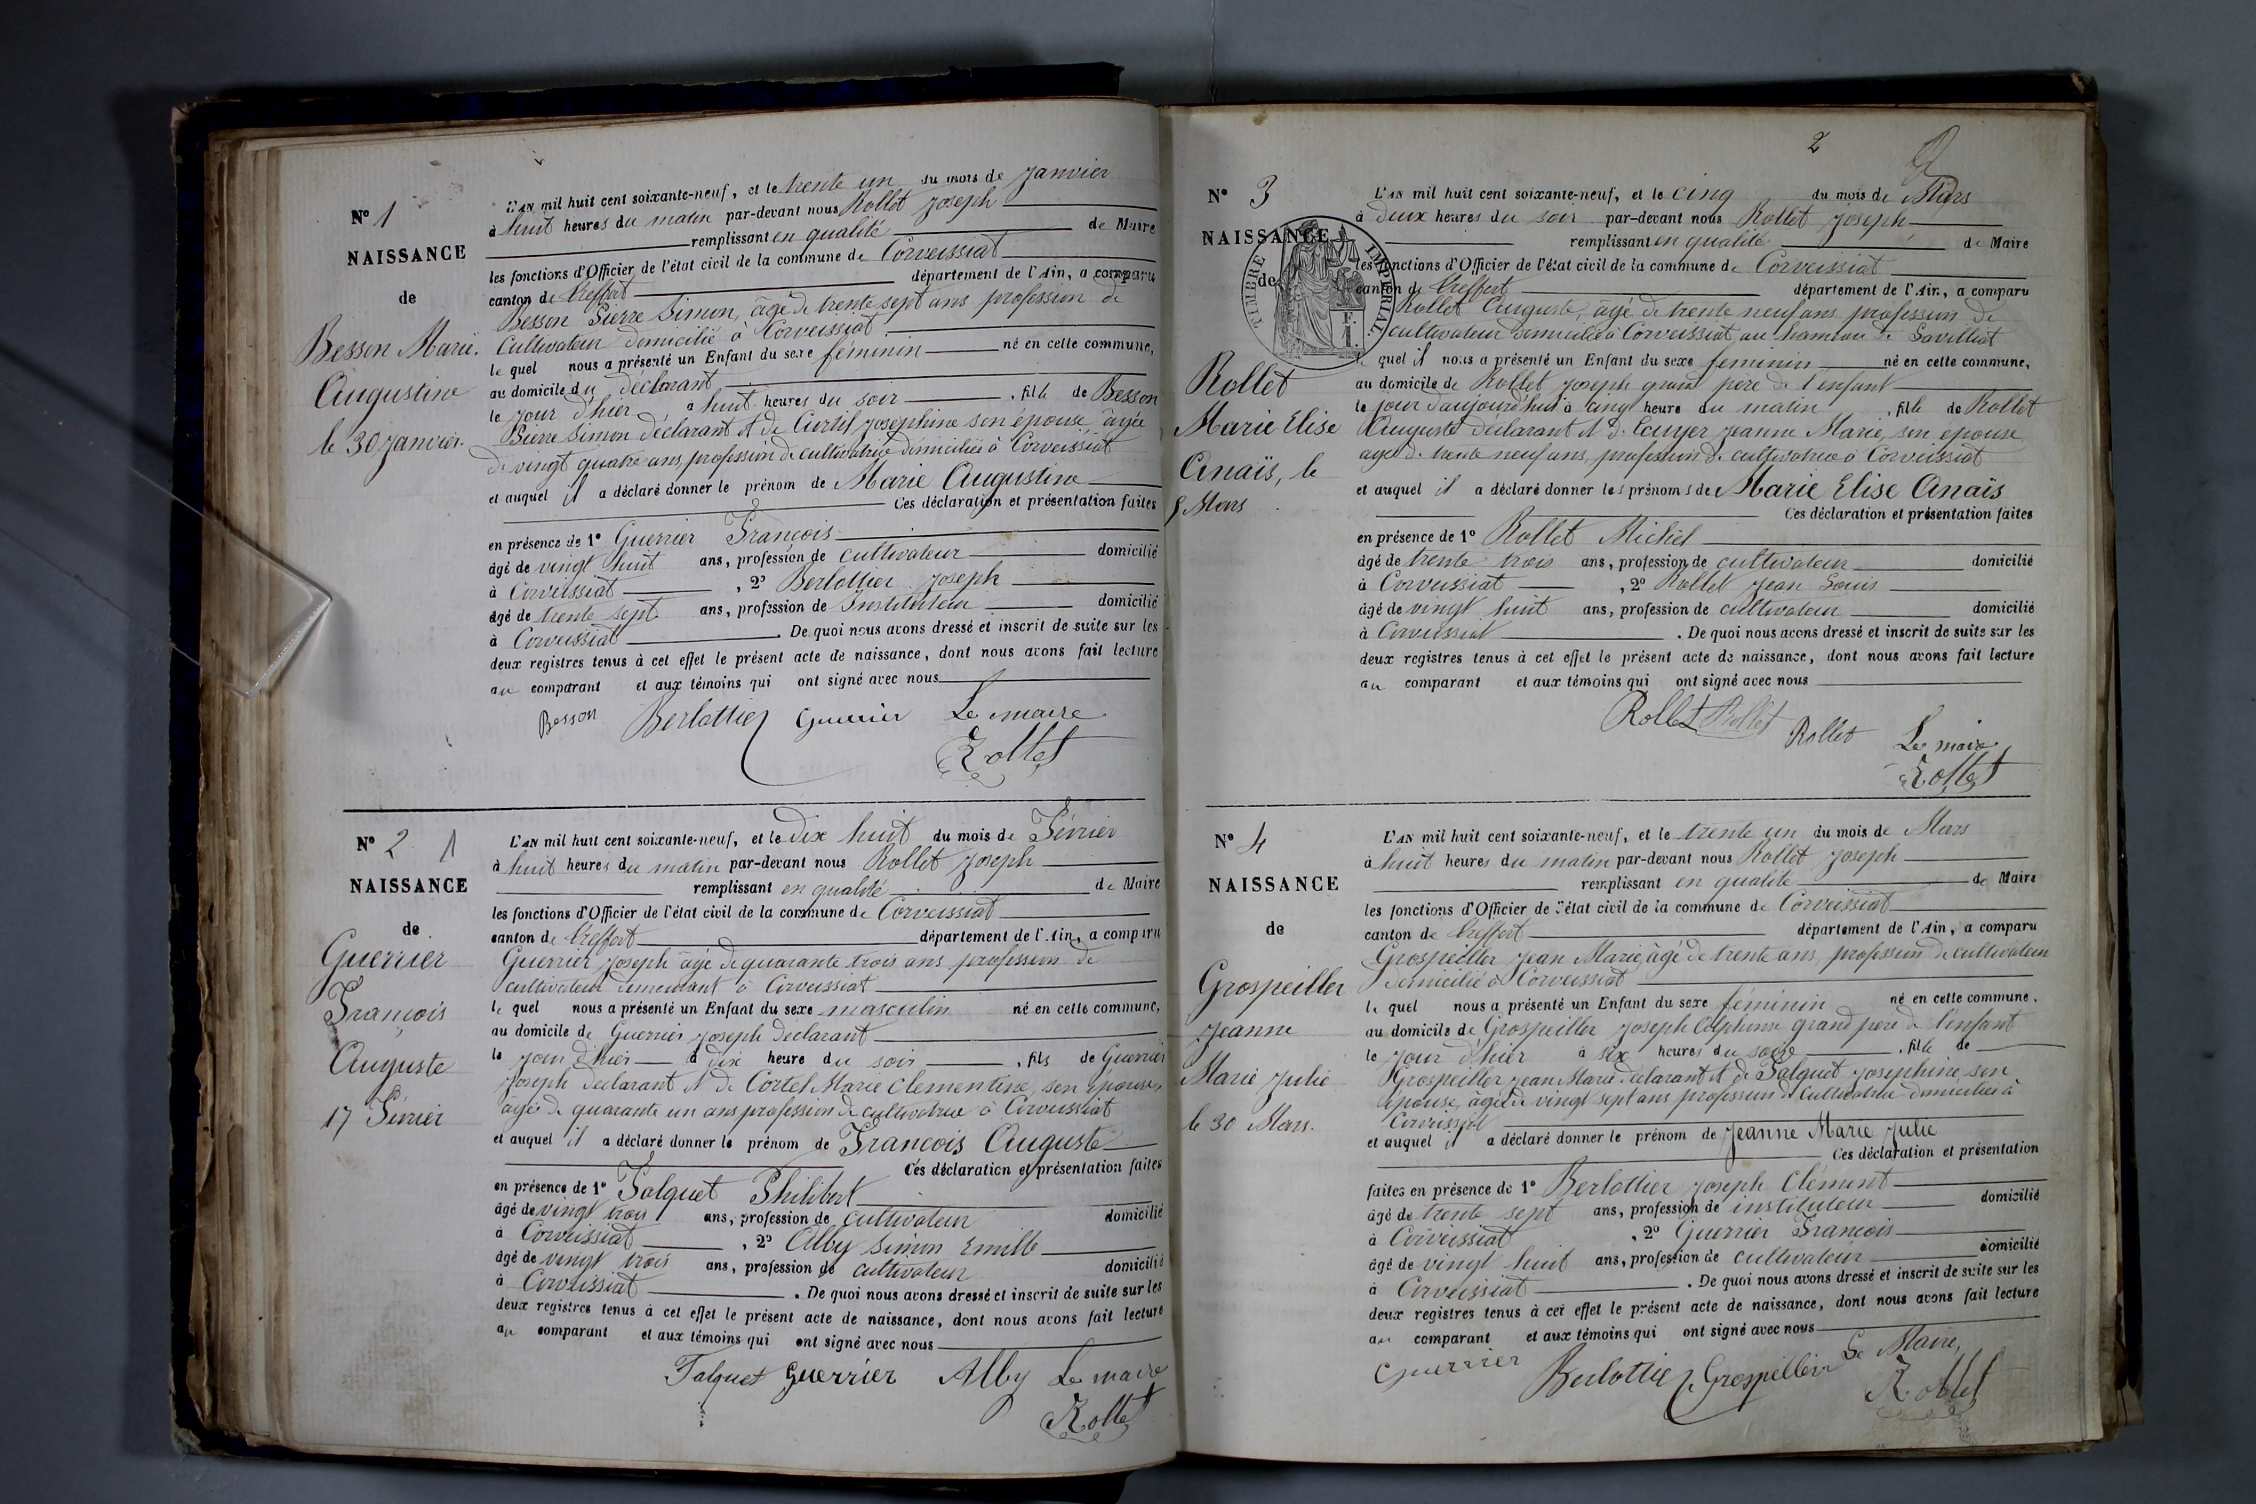 N° 1
NAISSANCE
de
Besson Marie
Augustine
le 30 janvier.
L'AN mil huit cent soixante-neuf, et le trente un du mois de janvier
à huit heures du matin par-devant nous Rollet Joseph
remplissant en qualité de Maire
les fonctions d'Officier de l'état civil de la commune de Corveissiat
canton de Treffort département de l'Ain, a comparu
Besson Pierre Simon, âgé de trente sept ans profession de
Cultivateur domicilié à Corveissiat
le quel nous a présenté un Enfant du sexe féminin né en cette commune,
au domicile du déclarant
le jour d'hier à huit heures du soir , fille de Besson
Pierre Simon déclarant et de Curtil Josephine son épouse, âgée
de vingt quatre ans, profession de cultivatrice domiciliée à Corveissiat
et auquel il a déclaré donner le prénom de Marie Augustine
Ces déclaration et présentation faites
en présence de 1° Guerrier François
âgé de vingt huit ans, profession de cultivateur domicilié
à Corveissiat , 2° Berlottier Joseph
âgé de trente sept ans, profession de Instituteur domicilié
à Corveissiat . De quoi nous avons dressé et inscrit de suite sur les
deux registres tenus à cet effet le présent acte de naissance, dont nous avons fait lecture
au comparant et aux témoins qui ont signé avec nous
Besson Berlottier Guerrier Le maire
Rollet
N° 2 1
NAISSANCE
de
Guerrier
François
Auguste
17 Février
L'AN mil huit cent soixante-neuf, et le dix huit du mois de Février
à huit heures du matin par-devant nous Rollet Joseph
remplissant en qualité de Maire
les fonctions d'Officier de l'état civil de la commune de Corveissiat
canton de Treffort département de l'Ain, a comparu
Guerrier Joseph âgé de quarante trois ans profession de
cultivateur demeurant à Corveissiat
le quel nous a présenté un Enfant du sexe masculin né en cette commune,
au domicile de Guerrier Joseph déclarant
le jour d'hier à dix heure du soir , fils de Guerrier
Joseph déclarant et de Cortel Marie Clementine, son épouse,
âgée de quarante un ans profession de cultivatrice à Corveissiat
et auquel il a déclaré donner le prénom de François Auguste
Ces déclaration et présentation faites
en présence de 1° Falquet Philibert
âgé de vingt trois ans, profession de cultivateur domicilié
à Corveissiat , 2° Alby Simon Emille
âgé de vingt trois ans, profession de cultivateur domicilié
à Corveissiat . De quoi nous avons dressé et inscrit de suite sur les
deux registres tenus à cet effet le présent acte de naissance, dont nous avons fait lecture
au comparant et aux témoins qui ont signé avec nous
Falquet Guerrier Alby Le maire
Rollet
2
N° 3
NAISSANCE
de
TIMBRE IMPERIAL
Rollet
Marie Elise
Anaïs, le
5 Mars
L'AN mil huit cent soixante-neuf, et le cinq du mois de Mars
à deux heures du soir par-devant nous Rollet Joseph
remplissant en qualité de Maire
les fonctions d'Officier de l'état civil de la commune de Corveissiat
canton de Treffort département de l'Ain, a comparu
Rollet Auguste, âgé de trente neuf ans profession de
cultivateur domicilié à Corveissiat au hameau de Savilliat
le quel il nous a présenté un Enfant du sexe féminin né en cette commune,
au domicile de Rollet Joseph grand père de l'enfant
le jour d'aujourd'hui à cinq heure du matin , fille de Rollet
Auguste déclarant et de Cuyer Jeanne Marie, son épouse
âgée de trente neuf ans, profession de cultivatrice à Corveissiat
et auquel il a déclaré donner les prénoms de Marie Elise Anaïs
Ces déclaration et présentation faites
en présence de 1° Rollet Michel
âgé de trente trois ans, profession de cultivateur domicilié
à Corveissiat , 2° Rollet Jean Louis
âgé de vingt huit ans, profession de cultivateur domicilié
à Corveissiat . De quoi nous avons dressé et inscrit de suite sur les
deux registres tenus à cet effet le présent acte de naissance, dont nous avons fait lecture
au comparant et aux témoins qui ont signé avec nous
Rollet Rollet Rollet Le maire
Rollet
N° 4
NAISSANCE
de
Grospeiller
Jeanne
Marie Julie
le 30 Mars.
L'AN mil huit cent soixante-neuf, et le trente un du mois de Mars
à huit heures du matin par-devant nous Rollet Joseph
remplissant en qualité de Maire
les fonctions d'Officier de l'état civil de la commune de Corveissiat
canton de Treffort département de l'Ain, a comparu
Grospeiller Jean Marie, âgé de trente ans, profession de cultivateur
domicilié à Corveissiat
le quel nous a présenté un Enfant du sexe féminin né en cette commune.
au domicile de Grospeiller Joseph Alphonse grand père de l'enfant
le jour d'hier à six heures du soir , fille de
Grospeiller Jean Marie déclarant et de Falquet Josephine, son
épouse, âgée de vingt sept ans profession de Cultivatrice domiciliée à
Corveissiat
et auquel il a déclaré donner le prénom de Jeanne Marie Julie
Ces déclaration et présentation
faites en présence de 1° Berlottier Joseph Clément
âgé de trente sept ans, profession de instituteur domicilié
à Corveissiat , 2° Guerrier François
âgé de vingt huit ans, profession de cultivateur domicilié
à Corveissiat . De quoi nous avons dressé et inscrit de suite sur les
deux registres tenus à cet effet le présent acte de naissance, dont nous avons fait lecture
au comparant et aux témoins qui ont signé avec nous
Guerrier Berlottier Grospellier Le Maire,
Rollet